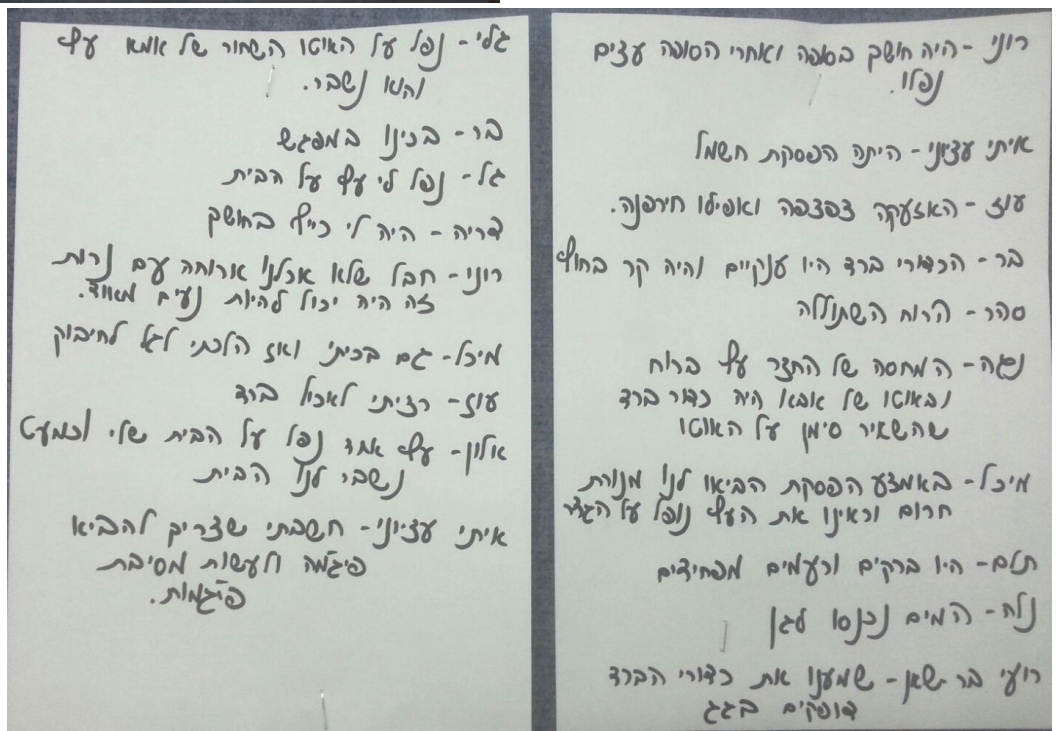 רוני - היה חושך בסופה ואחרי הסופה עצים
נפלו.
איתי עציוני - היתה הפסקת חשמל
עוז - האזעקה צפצפה ואפילו חירפנה.
בר - הכדורי ברד היו ענקיים והיה קר בחוץ
סהר - הרוח השתוללה
נגה - המחסה של החצר עף ברוח
ובאוטו של אבא היה כדור ברד
שהשאיר סימן על האוטו
מיכל - באמצע הפסקת הביאו לנו מנורת
חרום וראינו את העץ נופל על הגדר
תלם - היו ברקים ורעמים מפחידים
נלה - המים נכנסו לגן
רועי בר ישאן - שמענו את כדורי הברד
דופקים בגג
גלי - נפל על האוטו השחור של אמא עץ
והוא נשבר.
בר - בכינו במפגש
גל - נפל לי עץ על הבית
דריה - היה לי כייף בחושך
רוני - חבל שלא אכלנו ארוחה עם נרות
זה היה יכול להיות נעים מאוד.
מיכל - גם בכיתי ואז הלכתי לגל לחיבוק
עוז - רציתי לאכול ברד
אלון - עץ אחד נפל על הבית שלי וכמעט
נשבר לנו הבית
איתי עציוני - חשבתי שצריך להביא
פיג'מה ולעשות מסיבת
פיג'מות.